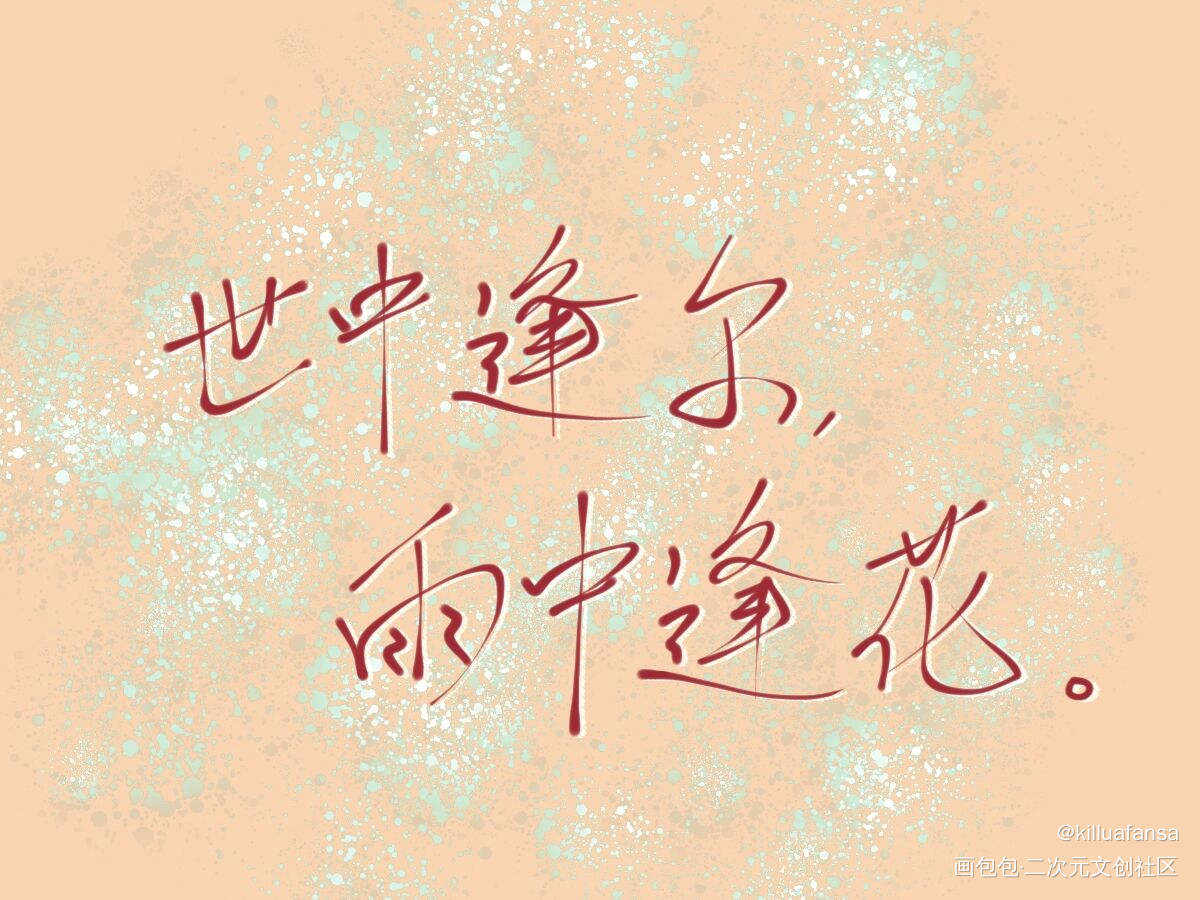 世中逢尔,
雨中逢花。
@killuafansa
画包包·二次元文创社区